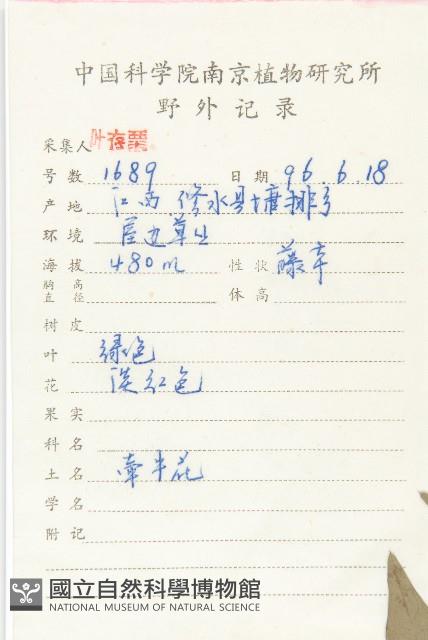 中国科学院南京植物研究所
野外记录
采集人 叶存粟
号数 1689 日期 96.6.18
产地 江西 修水县 塘排
环境 屋边草丛
海拔 480m 性状 藤本
胸高直径 体高
树皮
叶 绿色
花 淡红色
果实
科名
土名 牵牛花
学名
附记
國立自然科學博物館
NATIONAL MUSEUM OF NATURAL SCIENCE